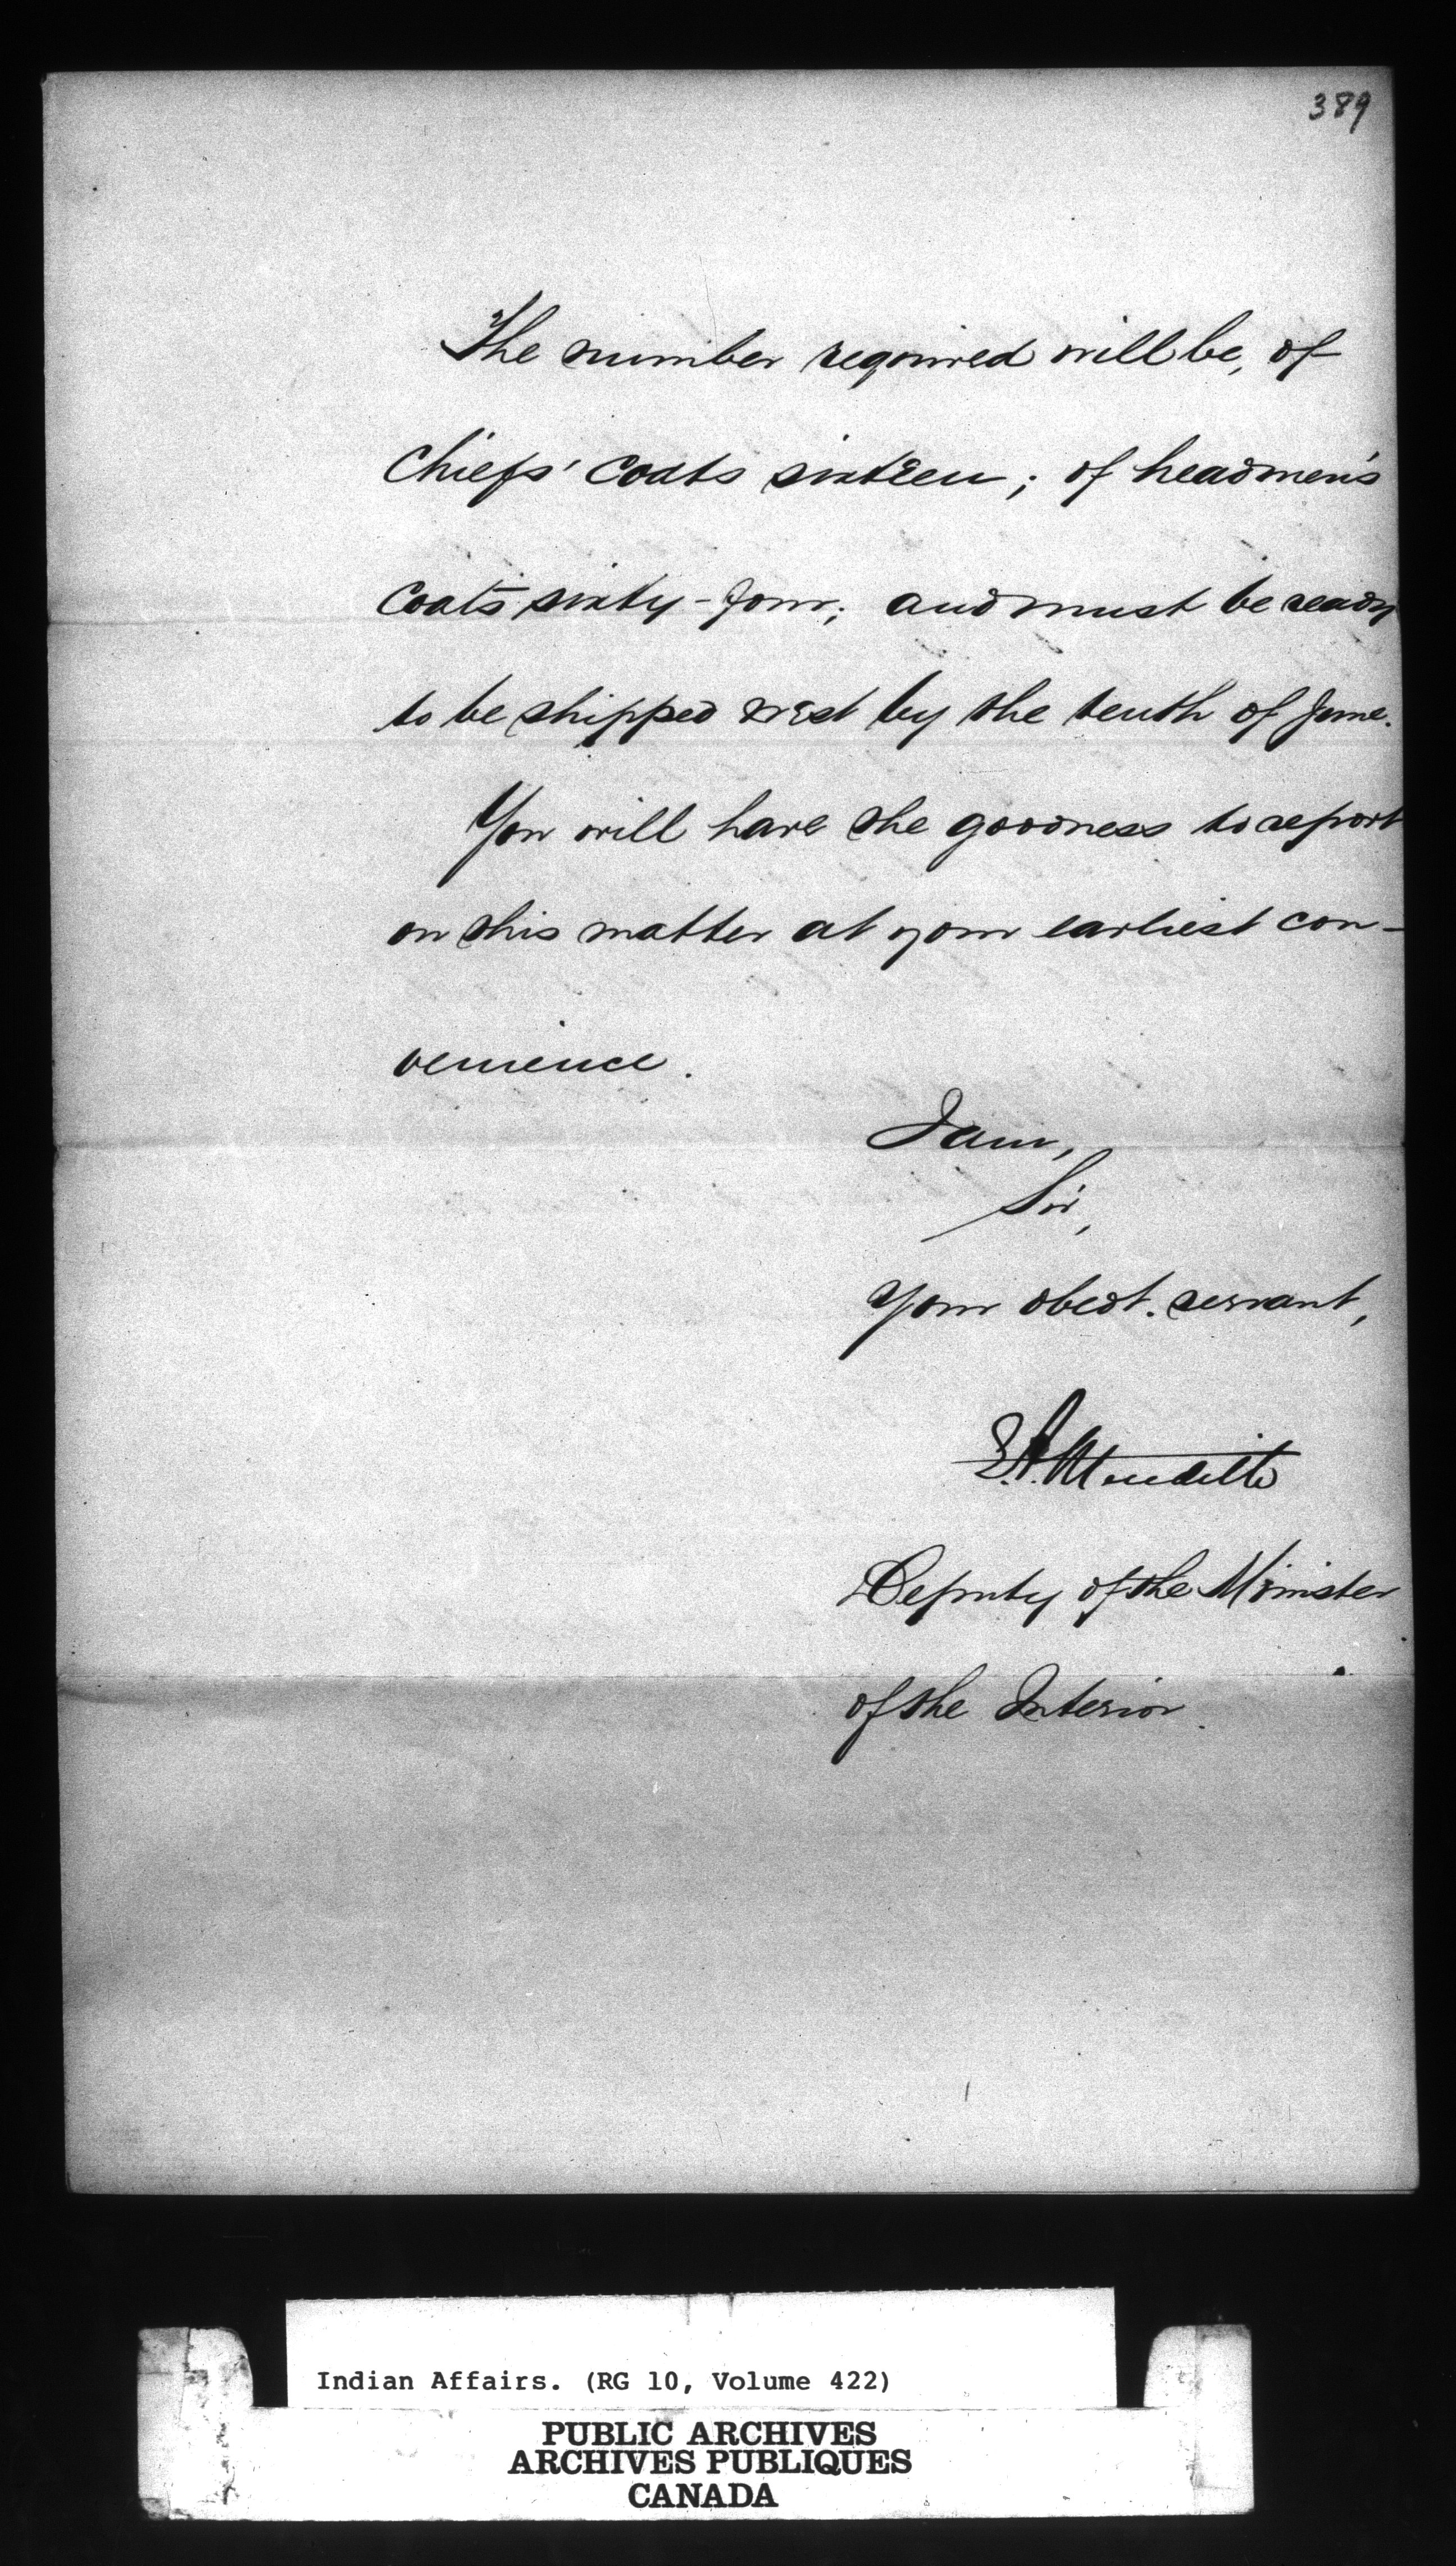 389
The number required will be, of
Chiefs' Coats sixteen; of headmen's
Coats sixty-four; and must be ready
to be shipped west by the tenth of June.
You will have the goodness to report
on this matter at your earliest con-
venience.
I am,
Sir,
Your obedt. servant,
E. A. Meredith
Deputy of the Minister
of the Interior.
Indian Affairs. (RG 10, Volume 422)
PUBLIC ARCHIVES
ARCHIVES PUBLIQUES
CANADA